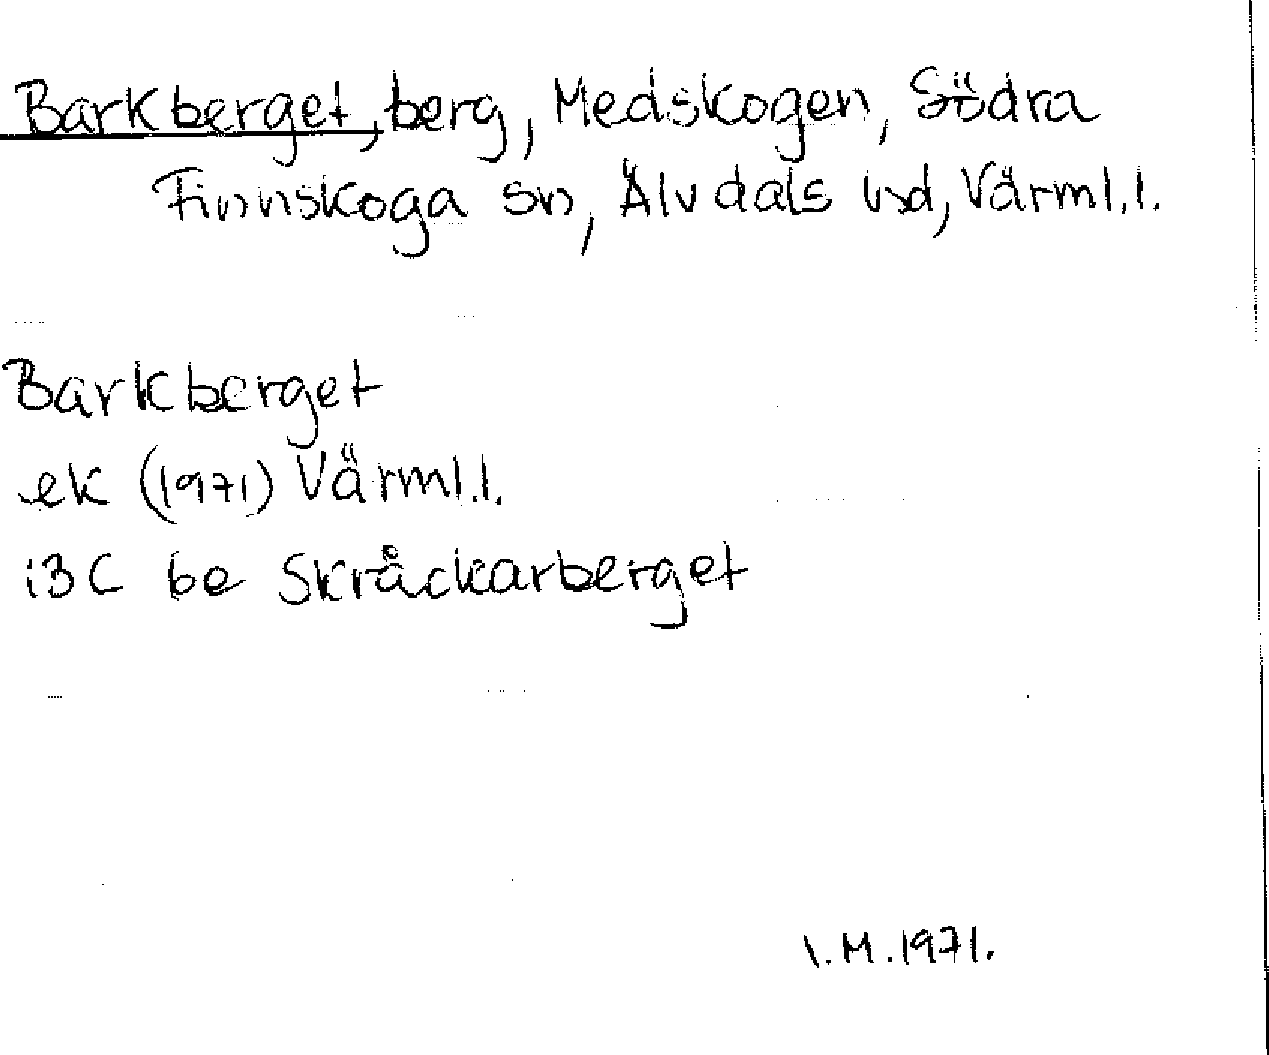 Barkberget, berg, Medskogen, Södra
Finnskoga sn, Älvdals hd, Värml.l.
Barkberget
ek (1971) Värml.l.
i3C be Skråckarberget
I.M.1971.